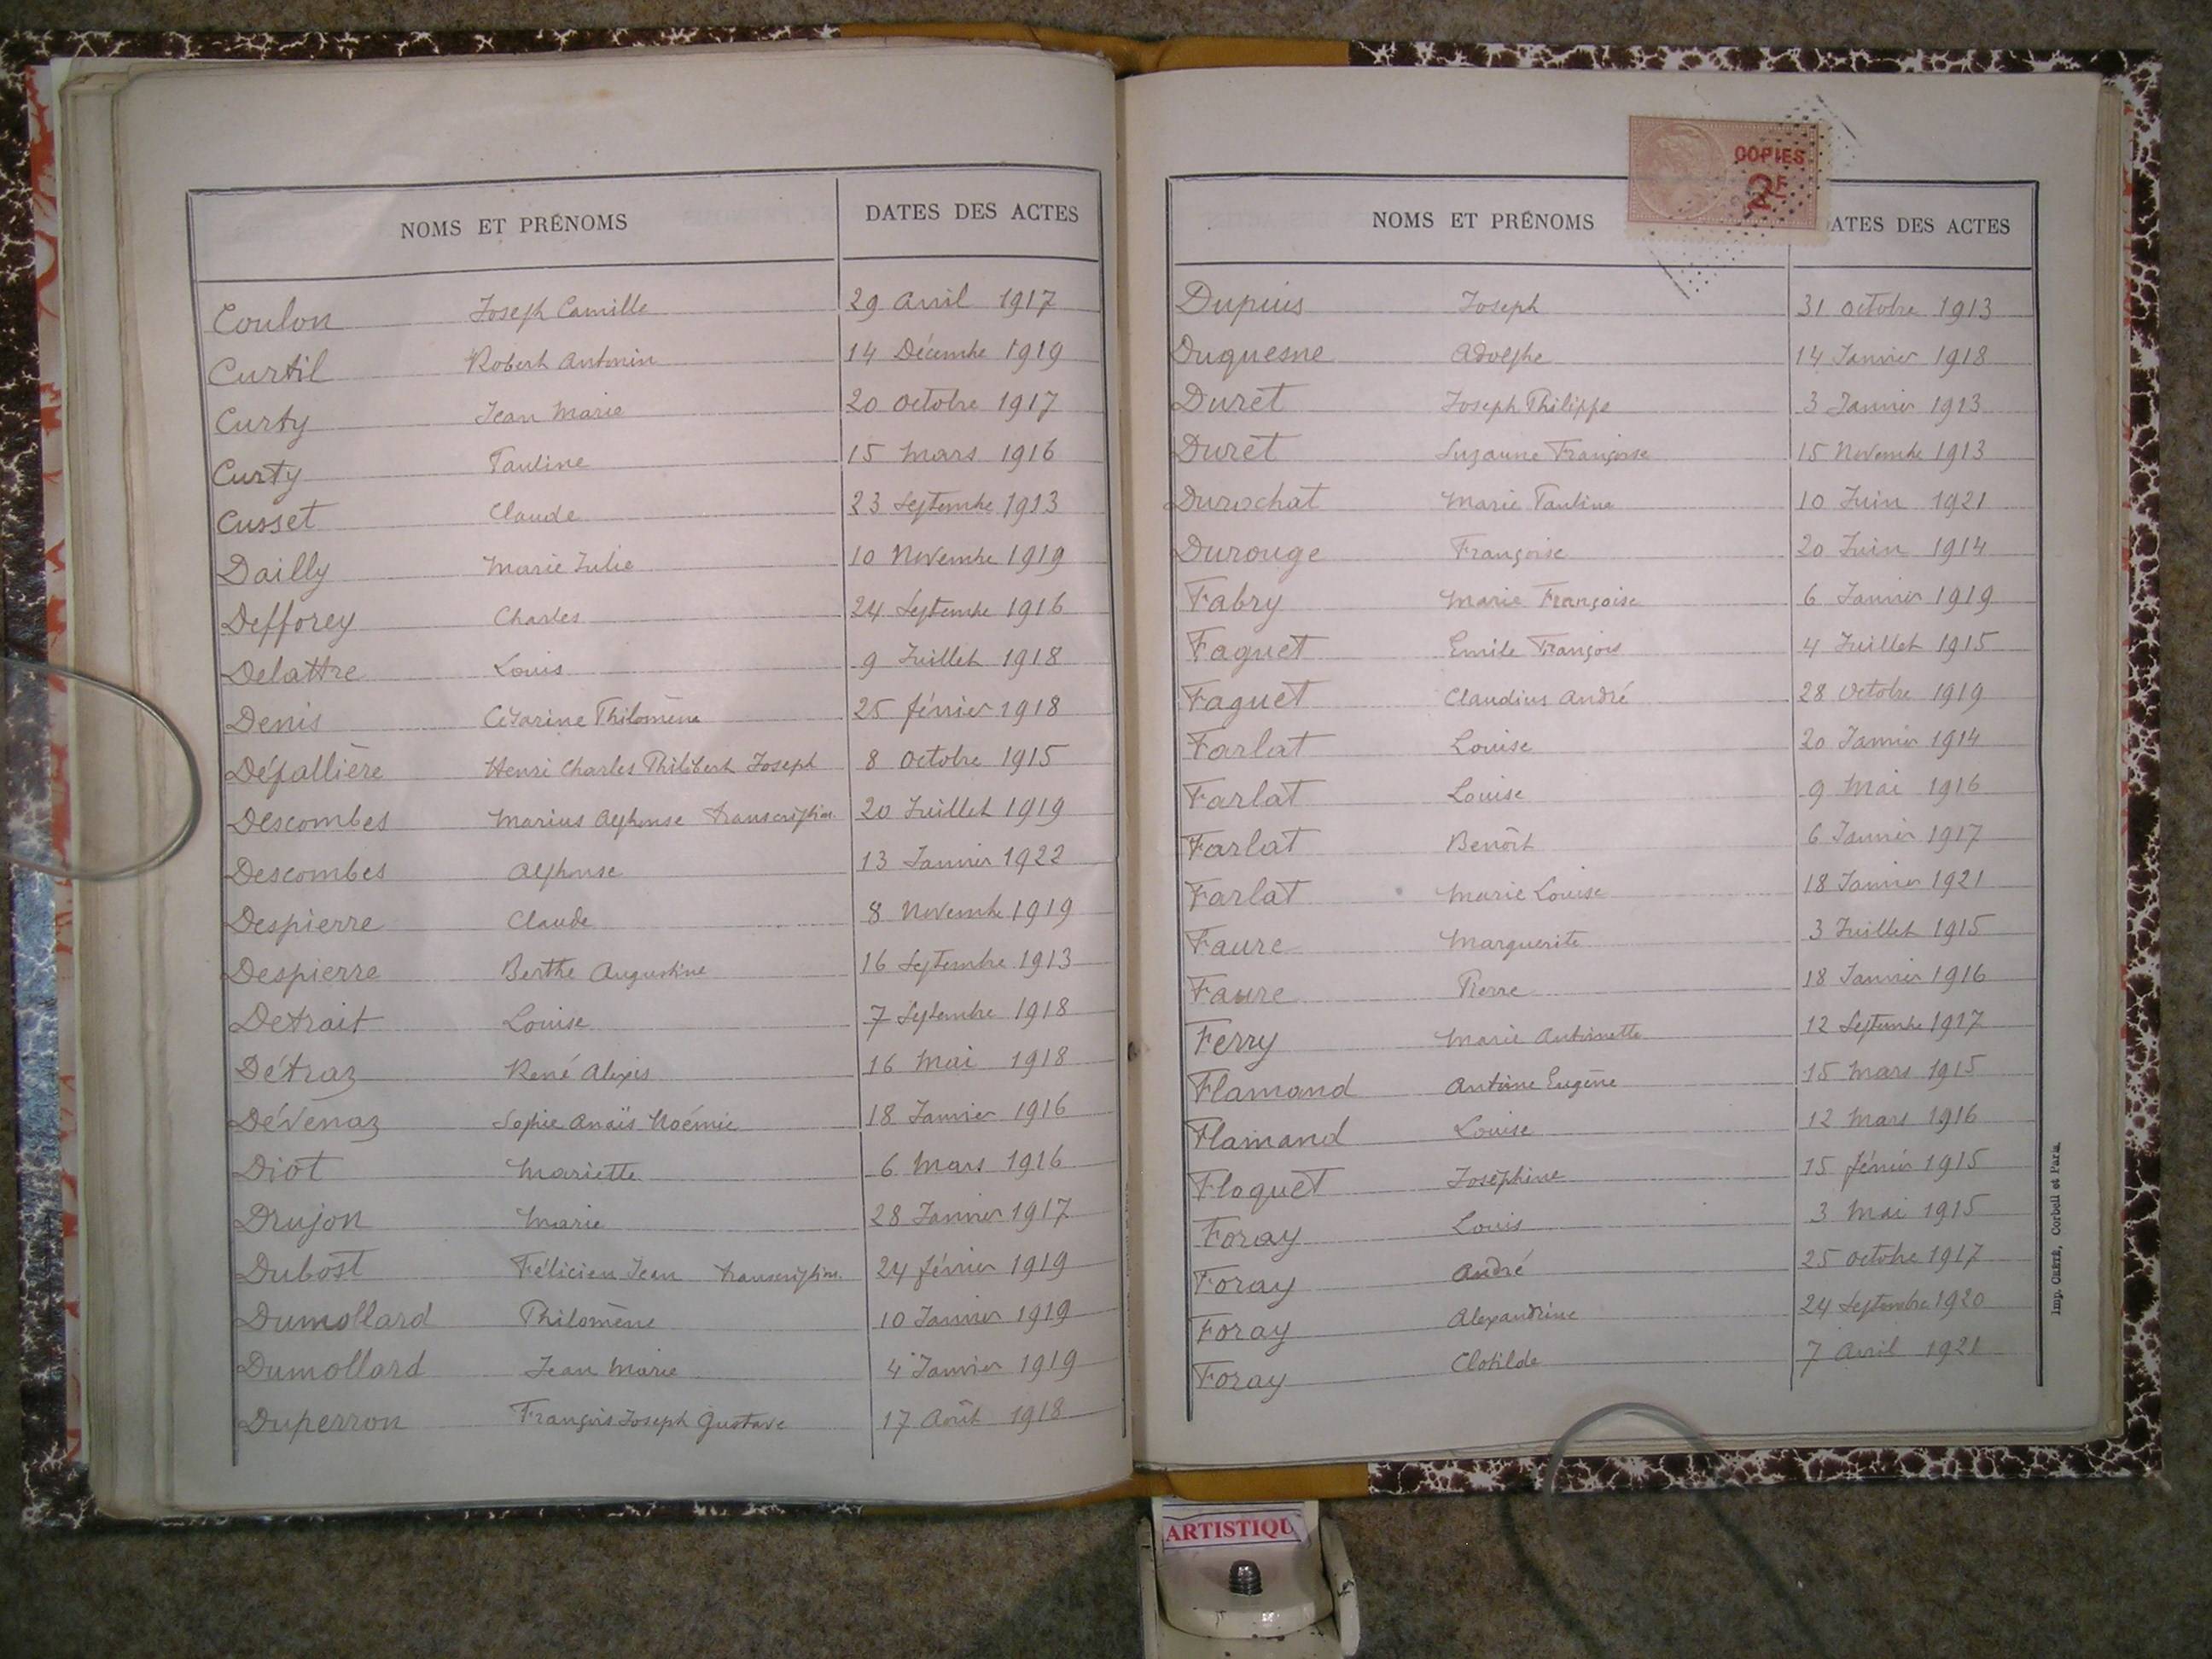 NOMS ET PRÉNOMS DATES DES ACTES
Coulon Joseph Camille 29 Avril 1917
Curtil Robert Antonin 14 Décembre 1919
Curty Jean Marie 20 Octobre 1917
Curty Pauline 15 Mars 1916
Cusset Claude 23 Septembre 1913
Dailly Marie Julie 10 Novembre 1919
Defforey Charles 24 Septembre 1916
Delattre Louis 9 Juillet 1918
Denis Césarine Philomène 25 février 1918
Dépallière Henri Charles Philibert Joseph 8 Octobre 1915
Descombes Marius Alphonse transcription 20 Juillet 1919
Descombes Alphonse 13 Janvier 1922
Despierre Claude 8 Novembre 1919
Despierre Berthe Augustine 16 Septembre 1913
Detrait Louise 7 Septembre 1918
Détraz René Alexis 16 Mai 1918
Dévenaz Sophie Anaïs Noémie 18 Janvier 1916
Diot Mariette 6 Mars 1916
Drujon Marie 28 Janvier 1917
Dubost Félicien Jean transcription 24 février 1919
Dumollard Philomène 10 Janvier 1919
Dumollard Jean Marie 4 Janvier 1919
Duperron François Joseph Gustave 17 Août 1918
COPIES
2F
NOMS ET PRÉNOMS DATES DES ACTES
Dupuis Joseph 31 Octobre 1913
Duquesne Adolphe 14 Janvier 1918
Duret Joseph Philippe 3 Janvier 1913
Duret Suzanne Françoise 15 Novembre 1913
Durochat Marie Pauline 10 Juin 1921
Durouge Françoise 20 Juin 1914
Fabry Marie Françoise 6 Janvier 1919
Faguet Emile François 4 Juillet 1915
Faguet Claudius André 28 Octobre 1919
Farlat Louise 20 Janvier 1914
Farlat Louise 9 Mai 1916
Farlat Benoît 6 Janvier 1917
Farlat Marie Louise 18 Janvier 1921
Faure Marguerite 3 Juillet 1915
Faure Pierre 18 Janvier 1916
Ferry Marie Antoinette 12 Septembre 1917
Flamand Antoine Eugène 15 Mars 1915
Flamand Louise 12 Mars 1916
Floquet Joséphine 15 février 1915
Foray Louis 3 Mai 1915
Foray André 25 Octobre 1917
Foray Alexandrine 24 Septembre 1920
Foray Clotilde 7 Avril 1921
Imp. CRÉTÉ, Corbeil et Paris.
ARTISTIQU